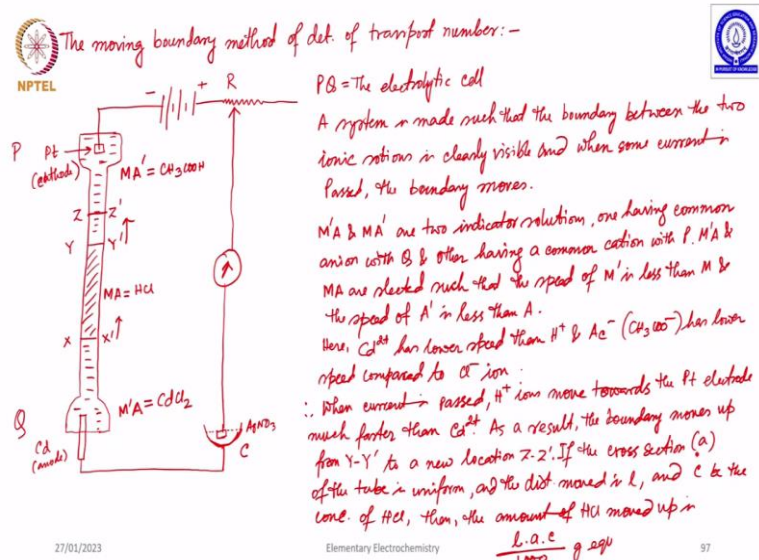 The moving boundary method of det. of transport number:-
NPTEL
- + R
P Pt (cathode) MA' = CH3COOH
Z Z'
Y Y'
MA = HCl
X X'
Q M'A = CdCl2
Cd (anode)
AgNO3
C
PQ = The electrolytic cell
A system is made such that the boundary between the two
ionic sotions is clearly visible and when some current is
passed, the boundary moves.
M'A & MA' are two indicator solutions, one having common
anion with Q & other having a common cation with P. M'A &
MA are slected such that the speed of M' is less than M &
the speed of A' is less than A.
Here, Cd2+ has lower speed than H+ & Ac- (CH3COO-) has lower
speed compared to Cl- ion.
∴ When current is passed, H+ ions move towards the Pt electrode
much faster than Cd2+. As a result, the boundary moves up
from Y-Y' to a new location Z-Z'. If the cross section (a)
of the tube is uniform, and the dist moved is l, and C be the
conc. of HCl, then, the amount of HCl moved up is
l.a.c / 1000 g equ
27/01/2023
Elementary Electrochemistry
97